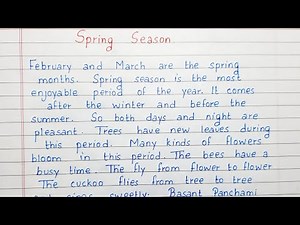 Spring Season
February and March are the spring
months. Spring season is the most
enjoyable period of the year. It comes
after the winter and before the
summer. So both days and night are
pleasant. Trees have new leaves during
this period. Many kinds of flowers
bloom in this period. The bees have a
busy time. The fly from flower to flower
The cuckoo flies from tree to tree
sings sweetly. Basant Panchami